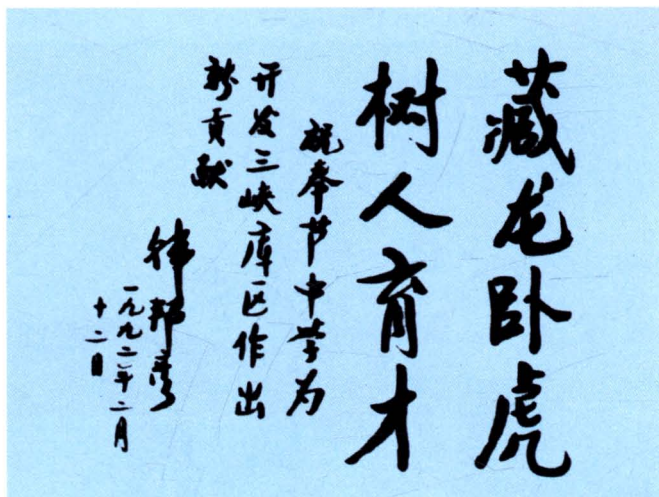 藏龙卧虎
树人育才
祝奉节中学为
开发三峡库区作出
新贡献
韩邦彦
一九九二年二月
十二日